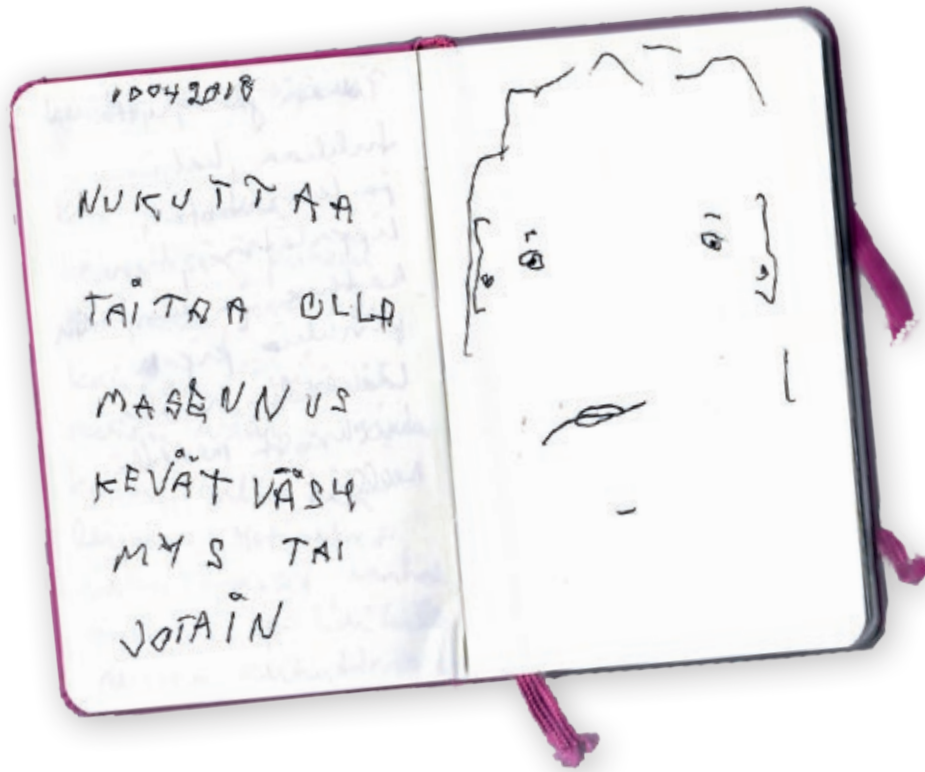 10042018
NUKUTTAA
TAITAA OLLA
MASENNUS
KEVÄT VÄSY
MYS TAI
JOTAIN